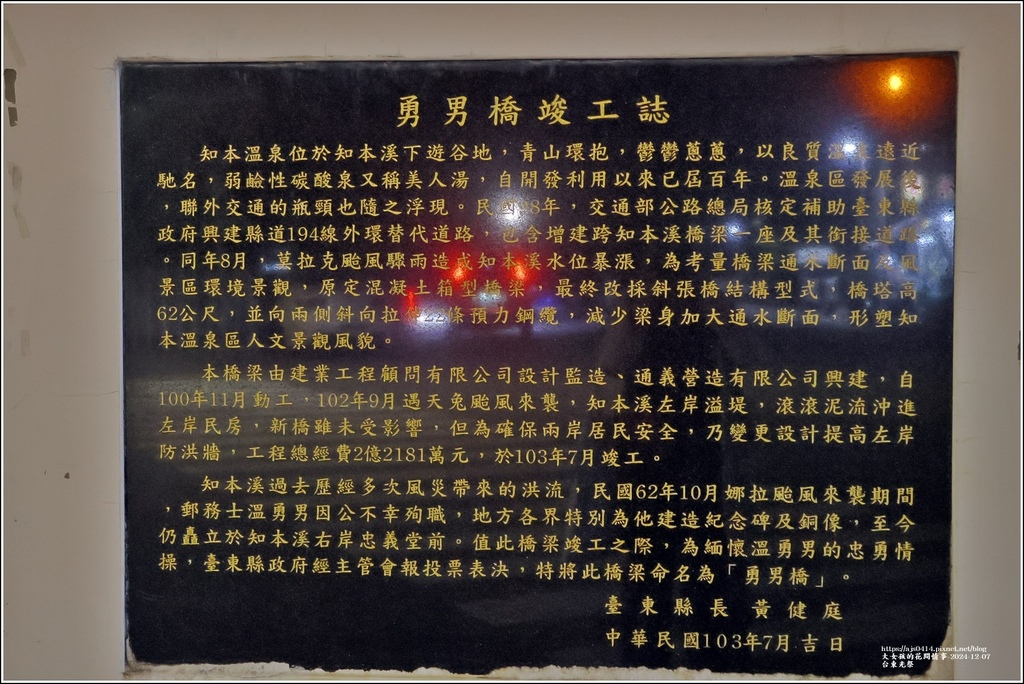 勇男橋竣工誌
知本溫泉位於知本溪下遊谷地，青山環抱，鬱鬱蔥蔥，以良質溫泉遠近
馳名，弱鹼性碳酸泉又稱美人湯，自開發利用以來已屆百年。溫泉區發展後
，聯外交通的瓶頸也隨之浮現。民國98年，交通部公路總局核定補助臺東縣
政府興建縣道194線外環替代道路，包含增建跨知本溪橋梁一座及其銜接道路
。同年8月，莫拉克颱風驟雨造成知本溪水位暴漲，為考量橋梁通水斷面及風
景區環境景觀，原定混凝土箱型橋梁，最終改採斜張橋結構型式，橋塔高
62公尺，並向兩側斜向拉伸22條預力鋼纜，減少梁身加大通水斷面，形塑知
本溫泉區人文景觀風貌。
本橋梁由建業工程顧問有限公司設計監造、通義營造有限公司興建，自
100年11月動工，102年9月遇天兔颱風來襲，知本溪左岸溢堤，滾滾泥流沖進
左岸民房，新橋雖未受影響，但為確保兩岸居民安全，乃變更設計提高左岸
防洪牆，工程總經費2億2181萬元，於103年7月竣工。
知本溪過去歷經多次風災帶來的洪流，民國62年10月娜拉颱風來襲期間
，郵務士溫勇男因公不幸殉職，地方各界特別為他建造紀念碑及銅像，至今
仍矗立於知本溪右岸忠義堂前。值此橋梁竣工之際，為緬懷溫勇男的忠勇情
操，臺東縣政府經主管會報投票表決，特將此橋梁命名為「勇男橋」。
臺東縣長 黃健庭
中華民國103年7月吉日
https://ajs0414.pixnet.net/blog
大女孩的花間情事 2024-12-07
台東光祭